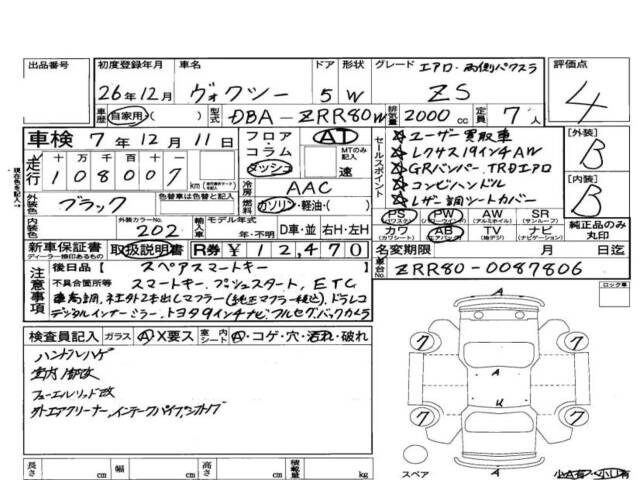 出品番号 初度登録年月 車名 ドア 形状 グレード エアロ・両側パワスラ 評価点
26年12月 ヴォクシー 5 W ZS 4
車歴 自家用・( ) 型式 DBA-ZRR80W 排気量 2000 cc 定員 7人
車検 7年12月11日 フロア コラム ダッシュ AT MTのみ記入 速
セールスポイント
☆ユーザー買取車
☆レクサス19インチAW
☆GRバンパー.TRDエアロ
☆コンビハンドル
☆レザー調シートカバー
[外装] B
[内装] B
現在色を記入→
走行 十 万 千 百 十 一
108007 km
冷房 AAC
外装色 ブラック 色替車は色替と記入 燃料 ガソリン・軽油・( )
PS (パワステ) PW (パワーウインド) AW (アルミホイル) SR (サンルーフ)
カワ (カワシート) AB (エアバック) TV (地デジ) ナビ (ナビゲーション)
純正品のみ丸印
内装色 外装カラーNo. 202 輸入車 モデル年式 年・不明 D車・並 右H・左H
新車保証書 取扱説明書 R券 ¥12,470 名変期限 月 日迄
ディーラー捺印あるもの
注意事項 後日品[ スペアスマートキー ] 車台No. ZRR80-0087806
不具合箇所等 スマートキー.プッシュスタート、ETC
車高調.社外2本出しマフラー(純正マフラー積込).ドラレコ
デジタルインナーミラー.トヨタ9インチナビ.フルセグ.バックカメラ
ロック車
検査員記入 ガラス A・X要ス 室内 シート A・コゲ・穴・汚れ・破れ
ハンドルハゲ
室内一部改
フューエルリッド改
外エアクリーナー,インテークパイプ
A
7 7
A
U
7 7
A
スペア
長さ cm 幅 cm 高さ cm 積載量 kg